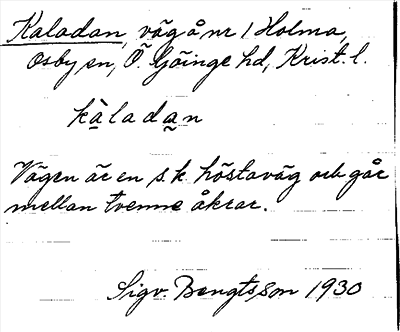 Kaladan, väg å nr 1 Holma,
Osby sn, Ö. Göinge hd, Krist. l.
kàladan̰
Vägen är en s.k. höstaväg och går
mellan tvenne åkrar.
Sigv. Bengtsson 1930